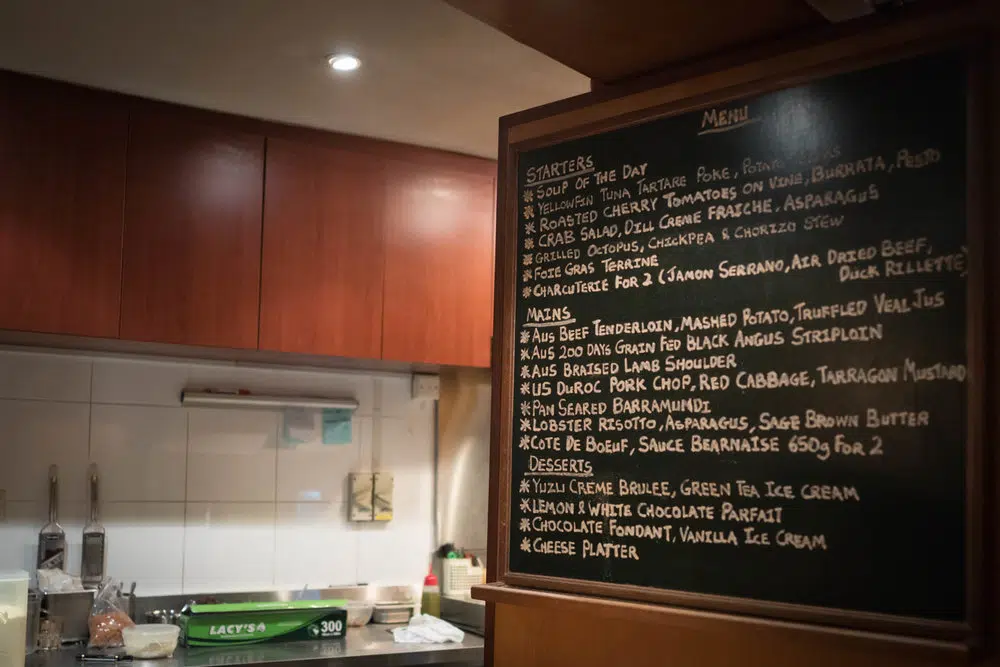 MENU
STARTERS
* SOUP OF THE DAY
* YELLOWFIN TUNA TARTARE POKE, POTATO
* ROASTED CHERRY TOMATOES ON VINE, BURRATA, PESTO
* CRAB SALAD, DILL CREME FRAICHE, ASPARAGUS
* GRILLED OCTOPUS, CHICKPEA & CHORIZO STEW
* FOIE GRAS TERRINE
* CHARCUTERIE FOR 2 (JAMON SERRANO, AIR DRIED BEEF,
DUCK RILLETTE)
MAINS
* AUS BEEF TENDERLOIN, MASHED POTATO, TRUFFLED VEAL JUS
* AUS 200 DAYS GRAIN FED BLACK ANGUS STRIPLOIN
* AUS BRAISED LAMB SHOULDER
* US DUROC PORK CHOP, RED CABBAGE, TARRAGON MUSTARD
* PAN SEARED BARRAMUNDI
* LOBSTER RISOTTO, ASPARAGUS, SAGE BROWN BUTTER
* COTE DE BOEUF, SAUCE BEARNAISE 650g FOR 2
DESSERTS
* YUZU CREME BRULEE, GREEN TEA ICE CREAM
* LEMON & WHITE CHOCOLATE PARFAIT
* CHOCOLATE FONDANT, VANILLA ICE CREAM
* CHEESE PLATTER
LACY'S
300